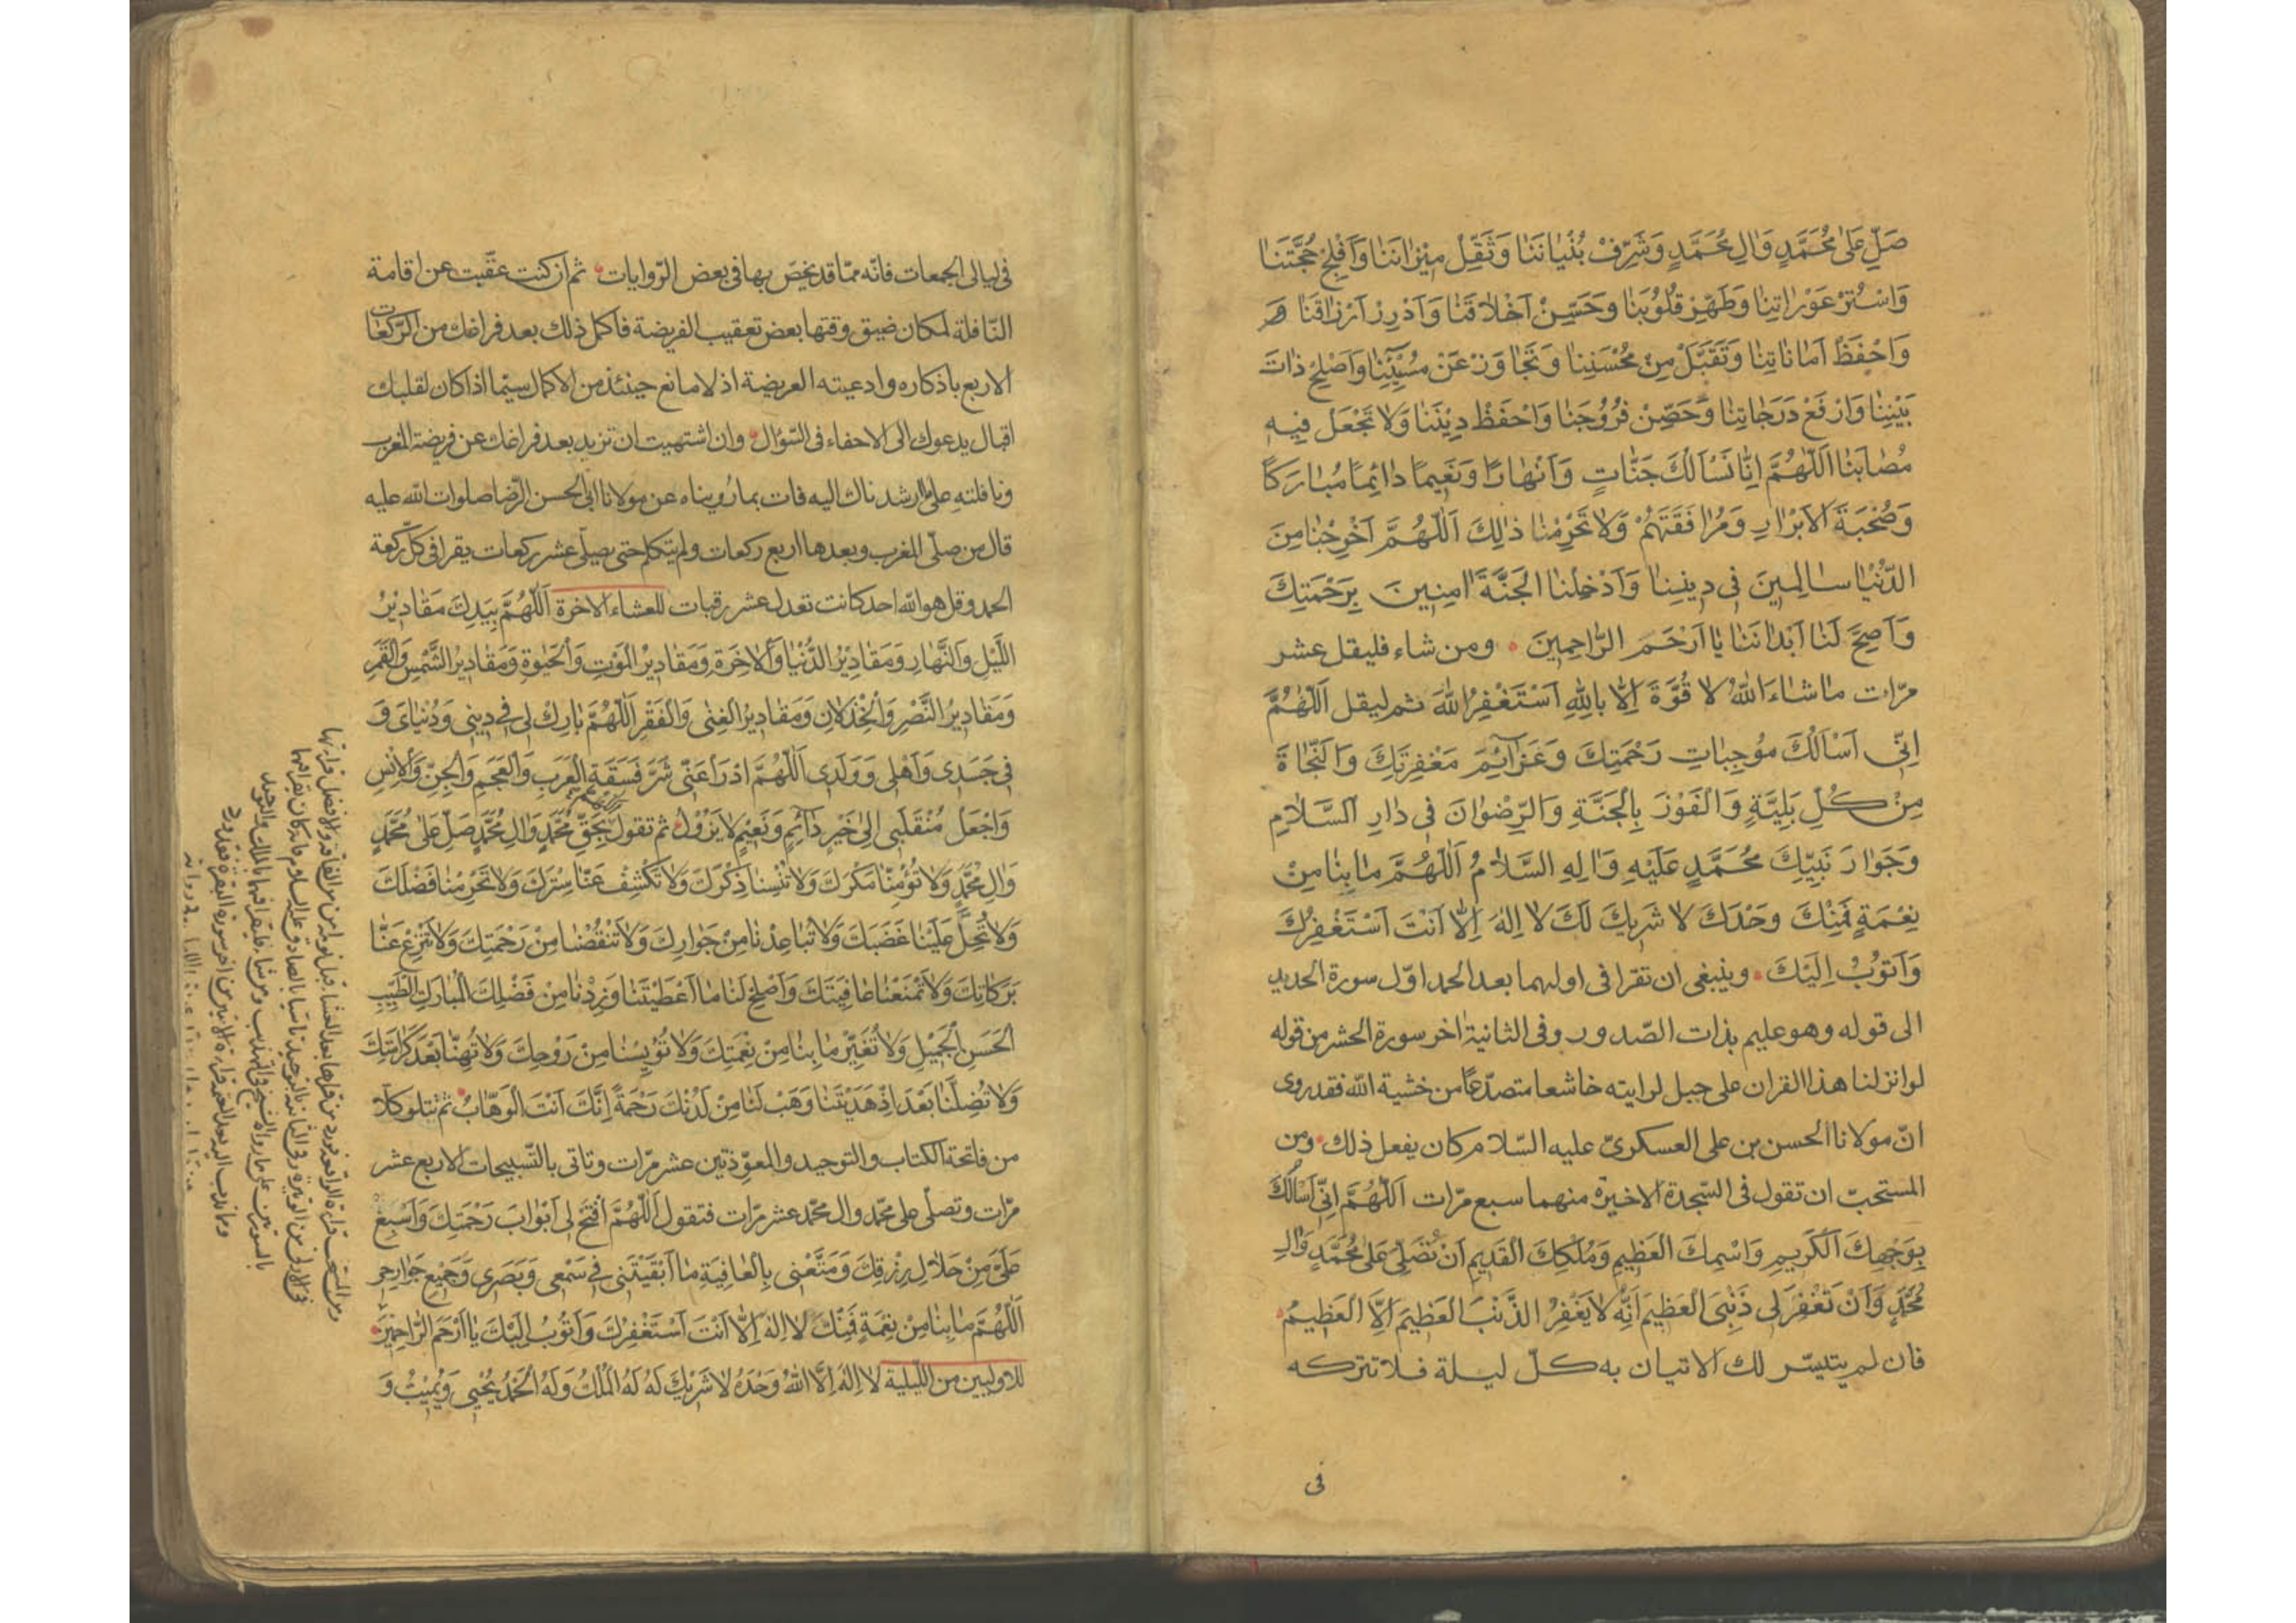 صَلِّ عَلىٰ مُحَمَّدٍ وَالِ مُحَمَّدٍ وَشَرِّفْ بُنْيَانَنٰا وَثَقِّلْ مِيْزٰانَنٰا وَاَفْلِجْ حُجَّتَنٰا
وَاسْتُرْ عَوْرٰاتِنٰا وَطَهِّرْ قُلُوُبَنٰا وَحَسِّنْ اَخْلٰاقَنٰا وَاَدْرِرْ اَرْزٰاقَنٰا
وَاحْفَظْ اَمٰانٰاتِنٰا وَتَقَبَّلْ مِنْ مُحْسِنِنٰا وَتَجٰاوَزْ عَنْ مُسِيْئِنٰا وَاَصْلِحْ ذٰاتَ
بَيْنِنٰا وَارْفَعْ دَرَجٰاتِنٰا وَحَصِّنْ فُرُوُجَنٰا وَاحْفَظْ دِيْنَنٰا وَلاٰ تَجْعَلْ فِيهِ
مُصٰابَنٰا اَللّٰهُمَّ اِنّٰا نَسْاَلُكَ جَنّٰاتٍ وَاَنْهٰارًا وَنَعِيمًا دٰائِمًا مُبٰارَكًا
وَصُحْبَةَ الاَبْرٰارِ وَمُرٰافَقَتَهُمْ وَلاٰ تَحْرِمْنٰا ذٰلِكَ اَللّٰهُمَّ اَخْرِجْنٰا مِنَ
الدُّنْيٰا سٰالِمِينَ فِى دِينِنٰا وَاَدْخِلْنٰا الْجَنَّةَ اٰمِنِينَ بِرَحْمَتِكَ
وَاَصِحَّ لَنٰا اَبْدٰانَنٰا يٰا اَرْحَمَ الرّٰاحِمِينَ ومن شاء فليقل عشر
مرّات مٰا شٰاءَ اللّٰهُ لاٰ قُوَّةَ اِلّٰا بِاللّٰهِ اَسْتَغْفِرُ اللّٰهَ ثم ليقل اَللّٰهُمَّ
اِنِّى اَسْاَلُكَ مُوُجِبٰاتِ رَحْمَتِكَ وَعَزٰائِمَ مَغْفِرَتِكَ وَالنَّجٰاةَ
مِنْ كُلِّ بَلِيَّةٍ وَالْفَوْزَ بِالْجَنَّةِ وَالرِّضْوٰانَ فِى دٰارِ السَّلاٰمِ
وَجَوٰارَ نَبِيِّكَ مُحَمَّدٍ عَلَيْهِ وَاٰلِهِ السَّلاٰمُ اَللّٰهُمَّ مٰا بِنٰا مِنْ
نِعْمَةٍ فَمِنْكَ وَحْدَكَ لاٰ شَرِيكَ لَكَ لاٰ اِلٰهَ اِلّٰا اَنْتَ اَسْتَغْفِرُكَ
وَاَتُوُبُ اِلَيْكَ وينبغى ان تقرا فى اولهما بعد الحمد اوّل سورة الحديد
الى قوله وهو عليم بذات الصّدور وفى الثانية اخر سورة الحشر من قوله
لو انزلنا هذا القران على جبل لرايته خاشعا متصدّعًا من خشية اللّه فقد روى
انّ مولانا الحسن بن على العسكرىّ عليه السّلام كان يفعل ذلك ومن
المستحبّ ان تقول فى السّجدة الاخيرة منهما سبع مرّات اَللّٰهُمَّ اِنِّى اَسْاَلُكَ
بِوَجْهِكَ الْكَرِيمِ وَاسْمِكَ الْعَظِيمِ وَمُلْكِكَ الْقَدِيمِ اَنْ تُصَلِّىَ عَلىٰ مُحَمَّدٍ وَاٰلِ
مُحَمَّدٍ وَاَنْ تَغْفِرَ لِى ذَنْبِىَ الْعَظِيمَ اِنَّهُ لاٰ يَغْفِرُ الذَّنْبَ الْعَظِيمَ اِلَّا الْعَظِيمُ
فان لم يتيسّر لك الاتيان به كلّ ليلة فلا تتركه
فى
فى ليالى الجمعات فانّه ممّا قد يخصّ بها فى بعض الرّوايات ثم ان كنت عقّبت عن اقامة
النّافلة لمكان ضيق وقتها بعض تعقيب الفريضة فاكمل ذلك بعد فراغك من الرّكعات
الاربع باذكاره وادعيته العريضة اذ لا مانع حينئذ من الاكمال سيّما اذا كان لقلبك
اقبال يدعوك الى الاحفاء فى السّؤال وان اشتهيت ان تزيد بعد فراغك عن فريضة المغرب
ونافلته على ما ارشدناك اليه فات بما رُويناه عن مولانا ابى الحسن الرّضا صلوات اللّه عليه
قال من صلّى المغرب وبعدها اربع ركعات ولم يتكلم حتى يصلّى عشر ركعات يقرا فى كلّ ركعة
الحمد وقل هو اللّه احد كانت تعدل عشر رقبات للعشاء الاخرة اَللّٰهُمَّ بِيَدِكَ مَقٰادِيْرُ
اللَّيْلِ وَالنَّهٰارِ وَمَقٰادِيْرُ الدُّنْيٰا وَالْاٰخِرَةِ وَمَقٰادِيْرُ الْمَوْتِ وَالْحَيٰوةِ وَمَقٰادِيْرُ الشَّمْسِ وَالْقَمَرِ
وَمَقٰادِيْرُ النَّصْرِ وَالْخِذْلاٰنِ وَمَقٰادِيْرُ الْغِنٰى وَالْفَقْرِ اَللّٰهُمَّ بٰارِكْ لِى فِى دِيْنِى وَدُنْيٰاىَ وَ
فِى جَسَدِى وَاَهْلِى وَوَلَدِى اَللّٰهُمَّ ادْرَأْ عَنِّى شَرَّ فَسَقَةِ الْعَرَبِ وَالْعَجَمِ وَالْجِنِّ وَالْاِنْسِ
وَاجْعَلْ مُنْقَلَبِى اِلىٰ خَيْرٍ دٰائِمٍ وَنَعِيْمٍ لاٰ يَزُوْلُ ثم تقول اللهم بِحَقِّ مُحَمَّدٍ وَاٰلِ مُحَمَّدٍ صَلِّ عَلىٰ مُحَمَّدٍ
وَاٰلِ مُحَمَّدٍ وَلاٰ تُؤْمِنّٰا مَكْرَكَ وَلاٰ تُنْسِنٰا ذِكْرَكَ وَلاٰ تَكْشِفْ عَنّٰا سِتْرَكَ وَلاٰ تَحْرِمْنٰا فَضْلَكَ
وَلاٰ تُحِلَّ عَلَيْنٰا غَضَبَكَ وَلاٰ تُبٰاعِدْنٰا مِنْ جَوٰارِكَ وَلاٰ تَنْقُصْنٰا مِنْ رَحْمَتِكَ وَلاٰ تَنْزِعْ عَنّٰا
بَرَكٰاتِكَ وَلاٰ تَمْنَعْنٰا عٰافِيَتَكَ وَاَصْلِحْ لَنٰا مٰا اَعْطَيْتَنٰا وَزِدْنٰا مِنْ فَضْلِكَ الْمُبٰارَكِ الطَّيِّبِ
الْحَسَنِ الْجَمِيْلِ وَلاٰ تُغَيِّرْ مٰا بِنٰا مِنْ نِعْمَتِكَ وَلاٰ تُؤْيِسْنٰا مِنْ رَوْحِكَ وَلاٰ تُهِنّٰا بَعْدَ كَرٰامَتِكَ
وَلاٰ تُضِلَّنٰا بَعْدَ اِذْ هَدَيْتَنٰا وَهَبْ لَنٰا مِنْ لَدُنْكَ رَحْمَةً اِنَّكَ اَنْتَ الْوَهّٰابُ ثم تتلو كلّا
من فاتحة الكتاب والتوحيد والمعوّذتين عشر مرّات وتاتى بالتّسبيحات الاربع عشر
مرّات وتصلّى على محمّد وال محمّد عشر مرّات فتقول اَللّٰهُمَّ افْتَحْ لِى اَبْوٰابَ رَحْمَتِكَ وَاَسْبِغْ
عَلَىَّ مِنْ حَلاٰلِ رِزْقِكَ وَمَتِّعْنِى بِالْعٰافِيَةِ مٰا اَبْقَيْتَنِى فِى سَمْعِى وَبَصَرِى وَجَمِيْعِ جَوٰارِحِى
اَللّٰهُمَّ مٰا بِنٰا مِنْ نِعْمَةٍ فَمِنْكَ لاٰ اِلٰهَ اِلّٰا اَنْتَ اَسْتَغْفِرُكَ وَاَتُوْبُ اِلَيْكَ يٰا اَرْحَمَ الرّٰاحِمِيْنَ
للاوليين من اللّيلية لاٰ اِلٰهَ اِلَّا اللّٰهُ وَحْدَهُ لاٰ شَرِيْكَ لَهُ لَهُ الْمُلْكُ وَلَهُ الْحَمْدُ يُحْيِى وَيُمِيْتُ وَ